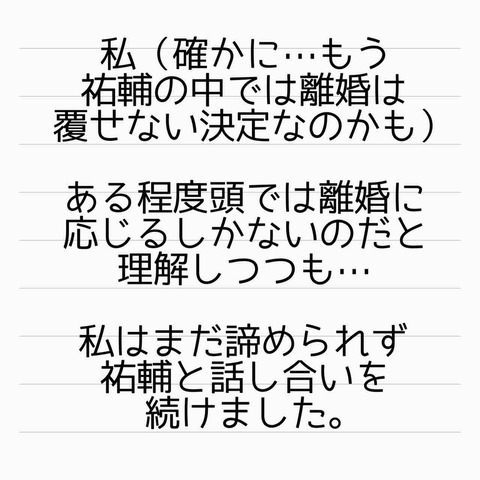 私（確かに…もう
祐輔の中では離婚は
覆せない決定なのかも）
ある程度頭では離婚に
応じるしかないのだと
理解しつつも…
私はまだ諦められず
祐輔と話し合いを
続けました。